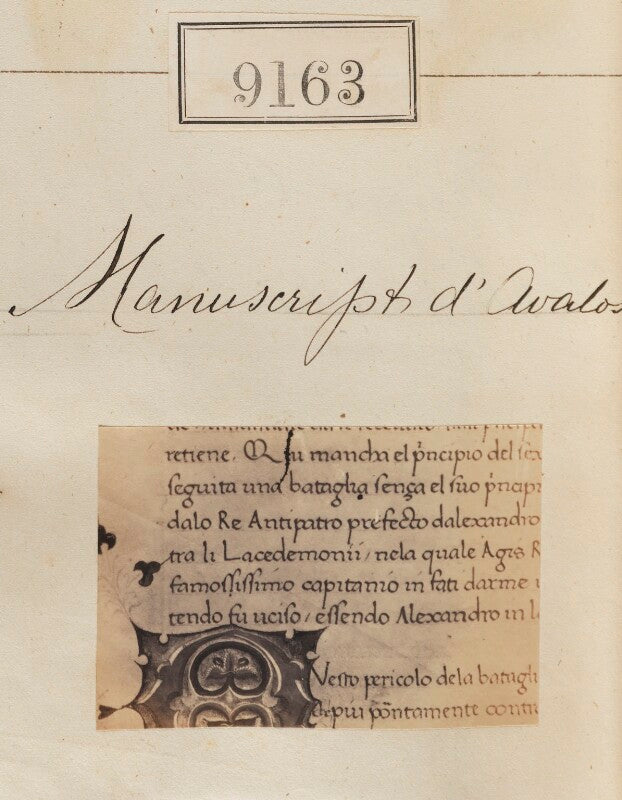 9163
Manuscript d'Avalos
retiene. Qui mancha el p̄ncipio del sex
seguita una bataglia sença el suo p̄ncip
dalo Re Antipatro prefecto dalexandro
tra li Lacedemonii / nela quale Agis R
famosissimo capitanio in fati darme
tendo fu uciso / essendo Alexandro in l
Vesto pericolo dela batagli
e piu p̄ontamente contr